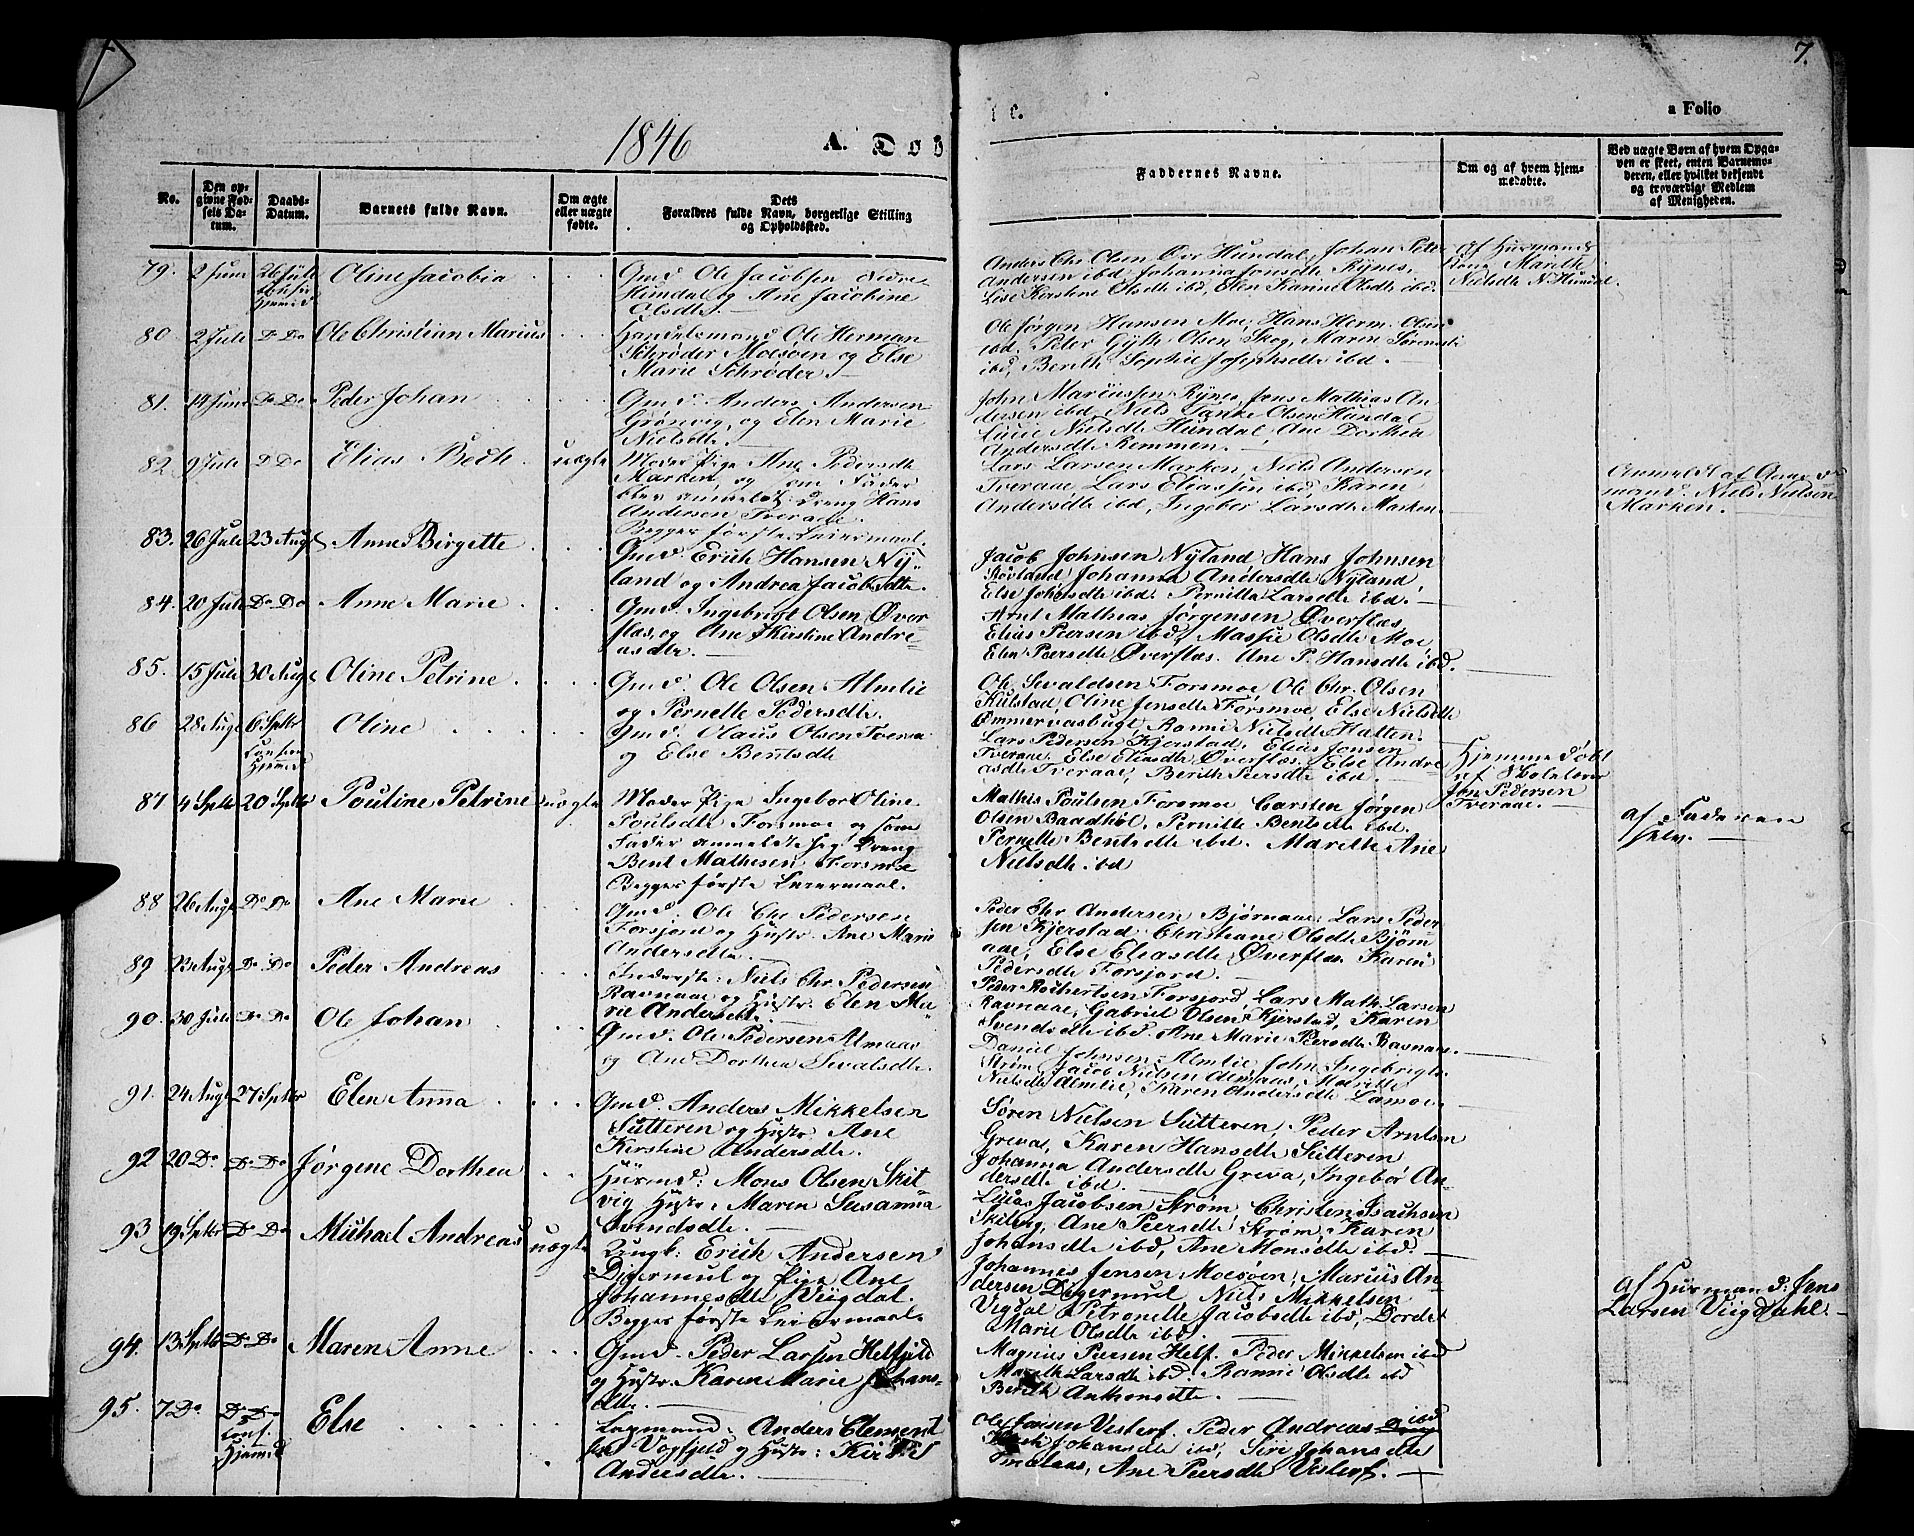 7.
1846
A. Døb
te.
a Folio
No.
Den opgivne Fødsels Datum.
Daabs-Datum.
Barnets fulde Navn.
Om ægte eller uægte fødte.
Dets Forældres fulde Navn, borgerlige Stilling og Opholdssted.
Faddernes Navne.
Om og af hvem hjemmedøbte.
Ved uægte Børn af hvem Opgaven er skeet, enten Barnemoderen, eller hvilket bekjendt og troværdigt Medlem af Menigheden.
79. 2 Juni 26 Juli Oline Jacobia
Gmd. Ole Jacobsen Nedre
Hundal og Ane Jacobine
Olsdtr.
Anders Chr. Olsen Øvr Hundal, Johan Peter
Andersen ibd Johanna Jonsdtr Rynes,
Lise Kirstine Olsdtr ibd, Elen Karine Olsdtr ibd.
Af Huusmands
Kone Marethe
Nielsdtr N. Hundal.
80. 2 Juli Do Do Ole Christian Marius
Handelsmand Ole Herman
Schrøder Mosøen og Else
Marie Schrøder.
Ole Jørgen Hansen Moe, Hans Herm. Olsen
ibd. Peter Olsen Skog, Maren Sørensdtr
ibd, Berith Sophie Josephsdtr ibd.
81. 14 Juni Do Do Peder Johan
Gmd. Anders Andersen
Grønvig, og Elen Marie
Nielsdtr.
John Mariussen Rynes, Jens Mathias An
dersen ibd, Niels Tanke Olsen Hundal
Nielsdtr Hundal, Ane Dorthea
Andersdtr Remmen.
82. 9 Juli Do Do Elias Beth uægte
Moder Pige Ane Pedersdtr
Marken, og som Fader
blev anmeldt Dreng Hans
Andersen Tveraae.
Begges første Leiermaal.
Lars Larsen Marken, Niels Andersen
Tveraae, Lars Eliassen ibd, Karen
Andersdtr ibd, Ingebor Larsdtr Marken.
Anmeldt af Gaard
mand. Niels Nielsen
Marken.
83. 26 Juli 23 Augt Anne Birgette
Gmd. Erich Hansen Ny-
land og Andrea Jacobsdtr.
Jacob Johnsen Nyland Hans Johnsen
Johanna Andersdtr Nyland
Else Johnsdtr ibd. Pernille Larsdtr ibd.
84. 20 Juli Do Do Anne Marie
Gmd. Ingebrigt Olsen Øver
flæs, og Ane Kirstine Andre
asdtr.
Arnt Mathias Jørgensen Øverflæs,
Elias Peersen ibd, Massie Olsdtr Moe,
Elen Peersdtr Øverflæs. Ane P. Hansdtr ibd.
85. 15 Juli 30 Augt Oline Petrine
Gmd. Ole Olsen Almlie
og Pernelle Pedersdtr.
Ole Sivaldsen Forsmoe, Ole Chr. Olsen
Kulstad, Oline Jensdtr Forsmoe, Else Nielsdtr
Ømmervasbugt, Ranni Nielsdtr Hatten.
86 28 Augt 6 Septbr Oline
Gmd. Olaus Olsen Tveraa
og Else Bentsdtr
Lars Pedersen Kjerstad, Elias Jonsen
Tveraae, Else Eliasdtr Øverflæs, Else Andre
asdtr Tveraae, Berith Peersdtr ibd.
Hjemme døbt
af Skolelærer
Jon Pedersen
Tveraae.
87 4 Septbr 20 Septbr Pouline Petrine uægte
Moder Pige Ingebor Oline
Poulsdtr Forsmoe og som
Fader anmeldte sig Dreng
Bent Mathisen Forsmoe
Begges første Leiermaal.
Mathis Poulsen Forsmoe Carsten Jørgen
Olsen Baadhøl, Pernille Bentsdtr ibd.
Pernelle Bentsdtr ibd. Marethe Ane
Nielsdtr ibd
af Faderen
selv.
88 26 Augt Do Do Ane Marie
Gmd. Ole Chr Pedersen
Forsjord og Hustr. Ane Marie
Andersdtr.
Peder Chr Andersen Bjørnaae, Lars Peder
sen Kjerstad Christiane Olsdtr Bjørn
aae, Else Eliasdtr Øverflæs Karen
Pedersdtr Forsjord.
89 23 Augt Do Do Peder Andreas
Inderste: Niels Chr. Pedersen
Ravnaae og Hustr. Elen Ma
rie Andersdtr.
Peder Rochertsen Forsjord, Lars Math. Larsen
Ravnaae, Gabriel Olsen Kjerstad, Karen
Svendsdtr ibd. Ane Marie Peersdtr Ravnaae.
90. 30 Juli Do Do Ole Johan
Gmd. Ole Pedersen Almaas
og Ane Dorthea Sivalsdtr.
Daniel Johnsen Almlie, John Ingebrigts.
Strøm, Jacob Nielsen Almaas, Marithe
Nielsdtr Almlie, Karen Andersdtr Lamoe.
91. 24 Augt 27 Septbr Elen Anna
Gmd. Anders Mikkelsen
Sutteren og Hustr. Ane
Kirstine Andersdtr.
Søren Nielsen Sutteren Peder Arntsen
Grevas, Karen Hansdtr Sutteren
Johanna Andersdtr Greva, Ingebor An
dersdtr ibd.
92 20 Do Do Do Jørgene Dorthea
Huusmd: Mons Olsen Skit
vig Hustr. Maren Susanna
Svendsdtr.
Lucas Jacobsen Strøm, Christen Isachsen
Ane Peersdtr Strøm, Karen
Johansdtr ibd, Ane Monsdtr ibd.
93 19 Septbr Do Do Michael Andreas uægte
Ungk: Erich Andersen
Digermul og Pige Ane
Johannesdtr Viigdal.
Begges første Leiermaal
Johannes Jensen Moesøen, Marius An
dersen Digermul Niels Mikkelsen
Vigdal Petronelle Jacobsdtr ibd, Dorde
Marie Olsdtr ibd.
af Huusmand: Jens
Larsen Viigdahl.
94. 13 Septbr Do Do Maren Anne
Gmd. Peder Larsen Helfjeld
og Hustr. Karen Marie Johans-
dtr.
Magnus Peersen Helf. Peder Mikkelsen ibd
Mareth Larsdtr ibd. Rannie Olsdtr ibd
Berith Anthonsdtr.
95. 7 Do Do Do Else
Conf.
Hjemd
Anders Clement
sen Vegfjeld og Hustr: Kirsti
Andersdtr.
Ole Larsen Vesterf. Peder Andreas ibd
Johansdtr ibd, Siri Johansdtr
Ane Peersdtr Vesterf.